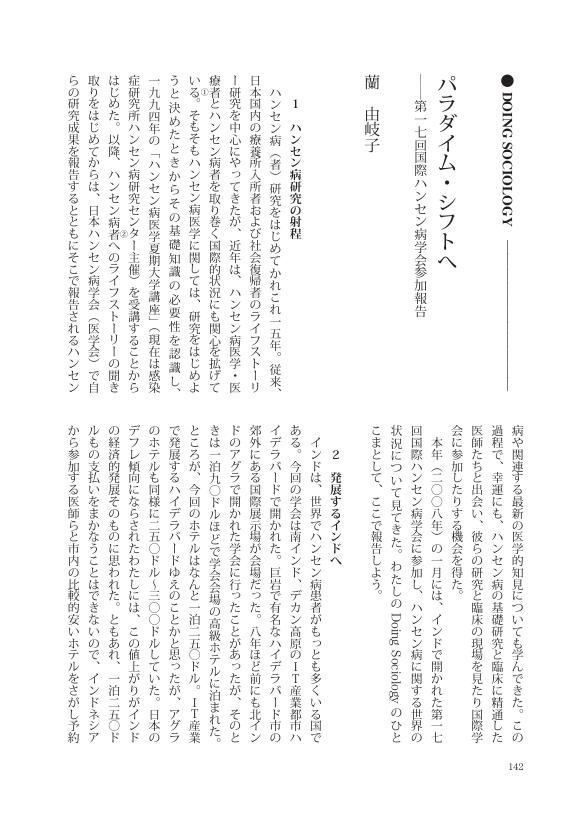 ● DOING SOCIOLOGY
パラダイム・シフトへ
――第一七回国際ハンセン病学会参加報告
蘭　由岐子
1　ハンセン病研究の射程
ハンセン病（者）研究をはじめてかれこれ一五年。従来、
日本国内の療養所入所者および社会復帰者のライフストーリ
ー研究を中心にやってきたが、近年は、ハンセン病医学・医
療者とハンセン病者を取り巻く国際的状況にも関心を拡げて
いる。①そもそもハンセン病医学に関しては、研究をはじめよ
うと決めたときからその基礎知識の必要性を認識し、
一九九四年の「ハンセン病医学夏期大学講座」（現在は感染
症研究所ハンセン病研究センター主催）を受講することから
はじめた。以降、ハンセン病者②へのライフストーリーの聞き
取りをはじめてからは、日本ハンセン病学会（医学会）で自
らの研究成果を報告するとともにそこで報告されるハンセン
病や関連する最新の医学的知見についても学んできた。この
過程で、幸運にも、ハンセン病の基礎研究と臨床に精通した
医師たちと出会い、彼らの研究と臨床の現場を見たり国際学
会に参加したりする機会を得た。
本年（二〇〇八年）の一月には、インドで開かれた第一七
回国際ハンセン病学会に参加し、ハンセン病に関する世界の
状況について見てきた。わたしの Doing Sociology のひと
こまとして、ここで報告しよう。
2　発展するインドへ
インドは、世界でハンセン病患者がもっとも多くいる国で
ある。今回の学会は南インド、デカン高原のＩＴ産業都市ハ
イデラバードで開かれた。巨岩で有名なハイデラバード市の
郊外にある国際展示場が会場だった。八年ほど前にも北イン
ドのアグラで開かれた学会に行ったことがあったが、そのと
きは一泊九〇ドルほどで学会会場の高級ホテルに泊まれた。
ところが、今回のホテルはなんと一泊二五〇ドル。ＩＴ産業
で発展するハイデラバードゆえのことかと思ったが、アグラ
のホテルも同様に二五〇ドル～三〇〇ドルしていた。日本の
デフレ傾向にならされたわたしには、この値上がりがインド
の経済的発展そのものに思われた。ともあれ、一泊二五〇ド
ルもの支払いをまかなうことはできないので、インドネシア
から参加する医師らと市内の比較的安いホテルをさがし予約
142